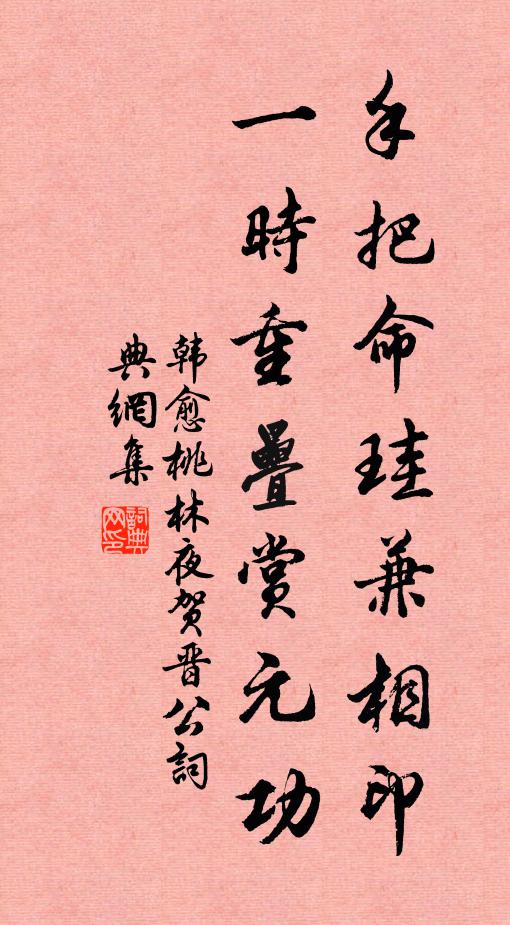 手把命珪兼相印
一時重疊賞元功
韩愈桃林夜贺晋公詞
典網集
詞典網印